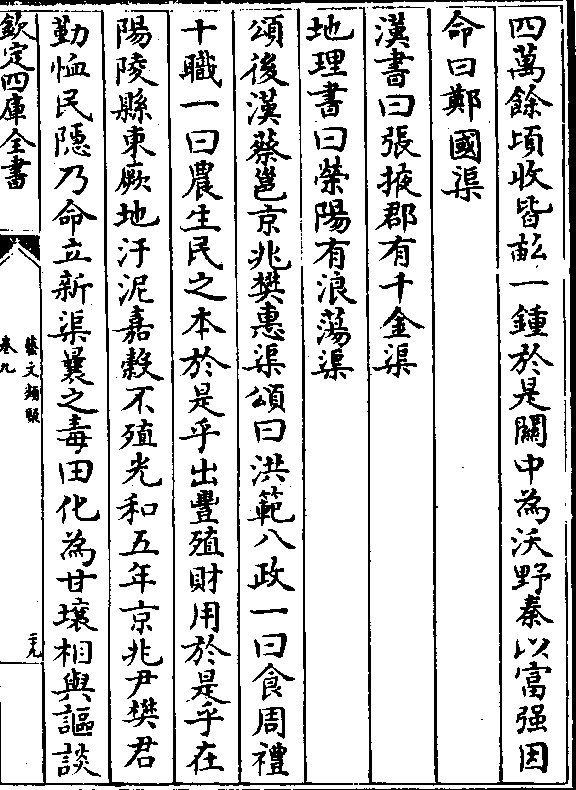 四萬餘頃收皆畝一鍾於是關中為沃野秦以富强因
命曰鄭國渠
漢書曰張掖郡有千金渠
地理書曰滎陽有浪蕩渠
頌後漢蔡邕京兆樊惠渠頌曰洪範八政一曰食周禮
十職一曰農生民之本於是乎出豐殖財用於是乎在
陽陵縣東厥地汙泥嘉穀不殖光和五年京兆尹樊君
勤恤民隱乃命立新渠曩之毒田化為甘壤相與謳談
欽定四庫全書
藝文類聚
卷九
二九